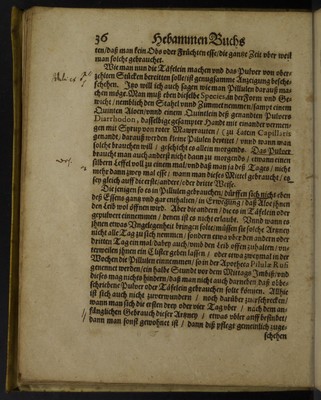 36 Hebammen Buchs
ten/daß man kein Obs oder Früchten esse/die gantze Zeit vber weil
man solche gebrauchet.
Wie man nun die Täfelein machen vnd das Pulver von ober-
zehlten Stücken bereitten solle/ist genugsamme Anzeigung besche-
schehen. Jtzo will ich auch sagen wie man Pillulen darauß ma-
chen möge. Man muß eben dieselbe Species, an der Form vnd Ge-
wicht/nemblich den Stahel vnnd Zimmet nemmen/sampt einem
Quinten Aloen/vnnd einem Quintlein deß genandten Pulvers
Diarrhodon, dasselbige gesampter Handt mit einander vermen-
gen mit Syrup von roter Mawrrauten/ (zu Latein Capillaris
genandt/darauß werden kleine Pilulen bereitet/ vnnd wann man
solche brauchen will/ geschicht es allein morgends. Das Pulver
braucht man auch anderst nicht dann zu morgends/ etwann einen
silbern Leffel voll zu einem mal/vnd daß man ja deß Tages/ nicht
mehr dann zwey mal esse/ wann man dieses Mittel gebraucht/ es
sey gleich auff die erste/andere/oder dritte Weise.
Die jenigen so es in Pillulen gebrauchen/ dürffen sich nicht eben
deß Essens gantz vnd gar enthalten/in Erwegung/daß Aloe ihnen
den Leib wol öffnen wird. Aber die andern/die es in Täfelein oder
gepulvert einnemmen/ denen ist es nicht erlaubt. Vnnd wann es
ihnen etwas Vngelegenheit bringen solte/müssen sie solche Artzney
nicht alle Tag zu sich nemmen/ sondern etwa vber den andern oder
dritten Tag ein mal/dabey auch/vmb den Leib offen zuhalten/vn-
terweilen jhnen ein Clistier geben lassen/ oder etwa zweymal in der
Wochen die Pillulen einnemmen/so in der Apotheck Pilulæ Ruffi
genennet werden/ein halbe Stundt vor dem Mittags Jmbiß/vnd
dieses mag nichts hindern/daß man nicht auch darneben daß obbe-
schriebene Pulver oder Täfelein gebrauchen solte können. Allhie
ist sich auch nicht zuverwundern/ noch darüber zuerschrecken/
wann man sich die ersten drey oder vier Tag vber/ nach dem an-
fänglichen Gebrauch dieser Artzney/ etwas vbler auff befindet/
dann man sonst gewohnet ist/ dann diß pflegt gemeinlich zuge-
schehen